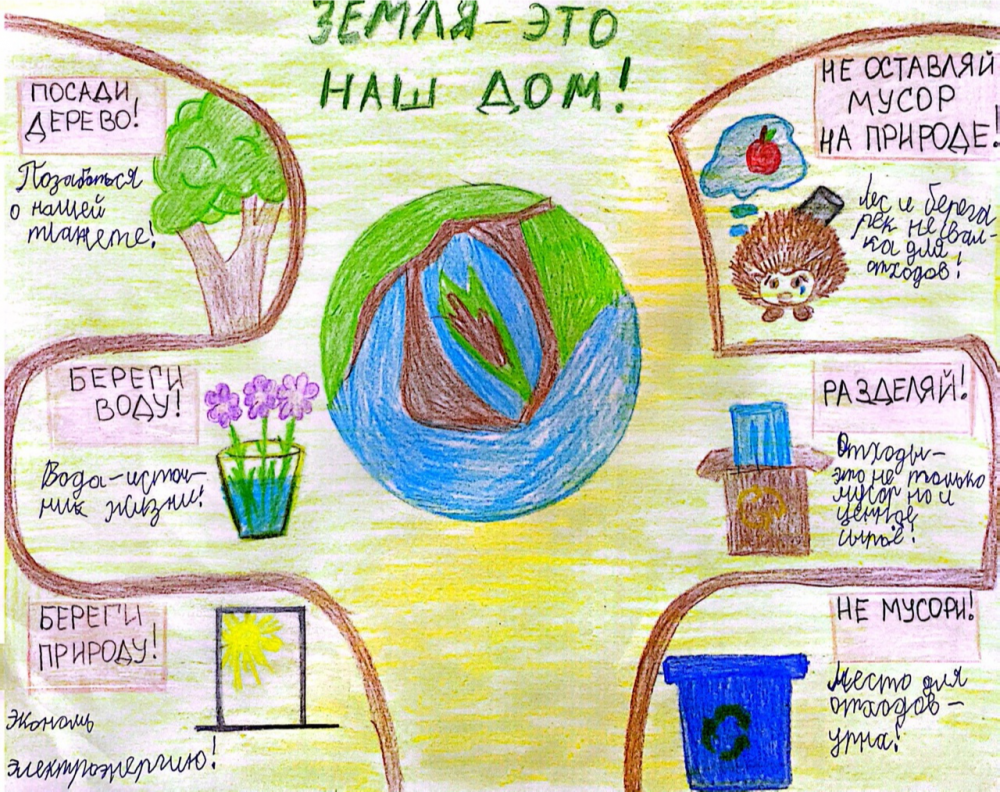 ЗЕМЛЯ - ЭТО
НАШ ДОМ!
ПОСАДИ
ДЕРЕВО!
Позаботься
о нашей
планете!
БЕРЕГИ
ВОДУ!
Вода-источ-
ник жизни!
БЕРЕГИ
ПРИРОДУ!
Экономь
электроэнергию!
НЕ ОСТАВЛЯЙ
МУСОР
НА ПРИРОДЕ!
Лес и берега
рек не свал-
ка для
отходов!
РАЗДЕЛЯЙ!
Отходы-
это не только
мусор но и
ценное
сырьё!
НЕ МУСОРИ!
Место для
отходов-
урна!